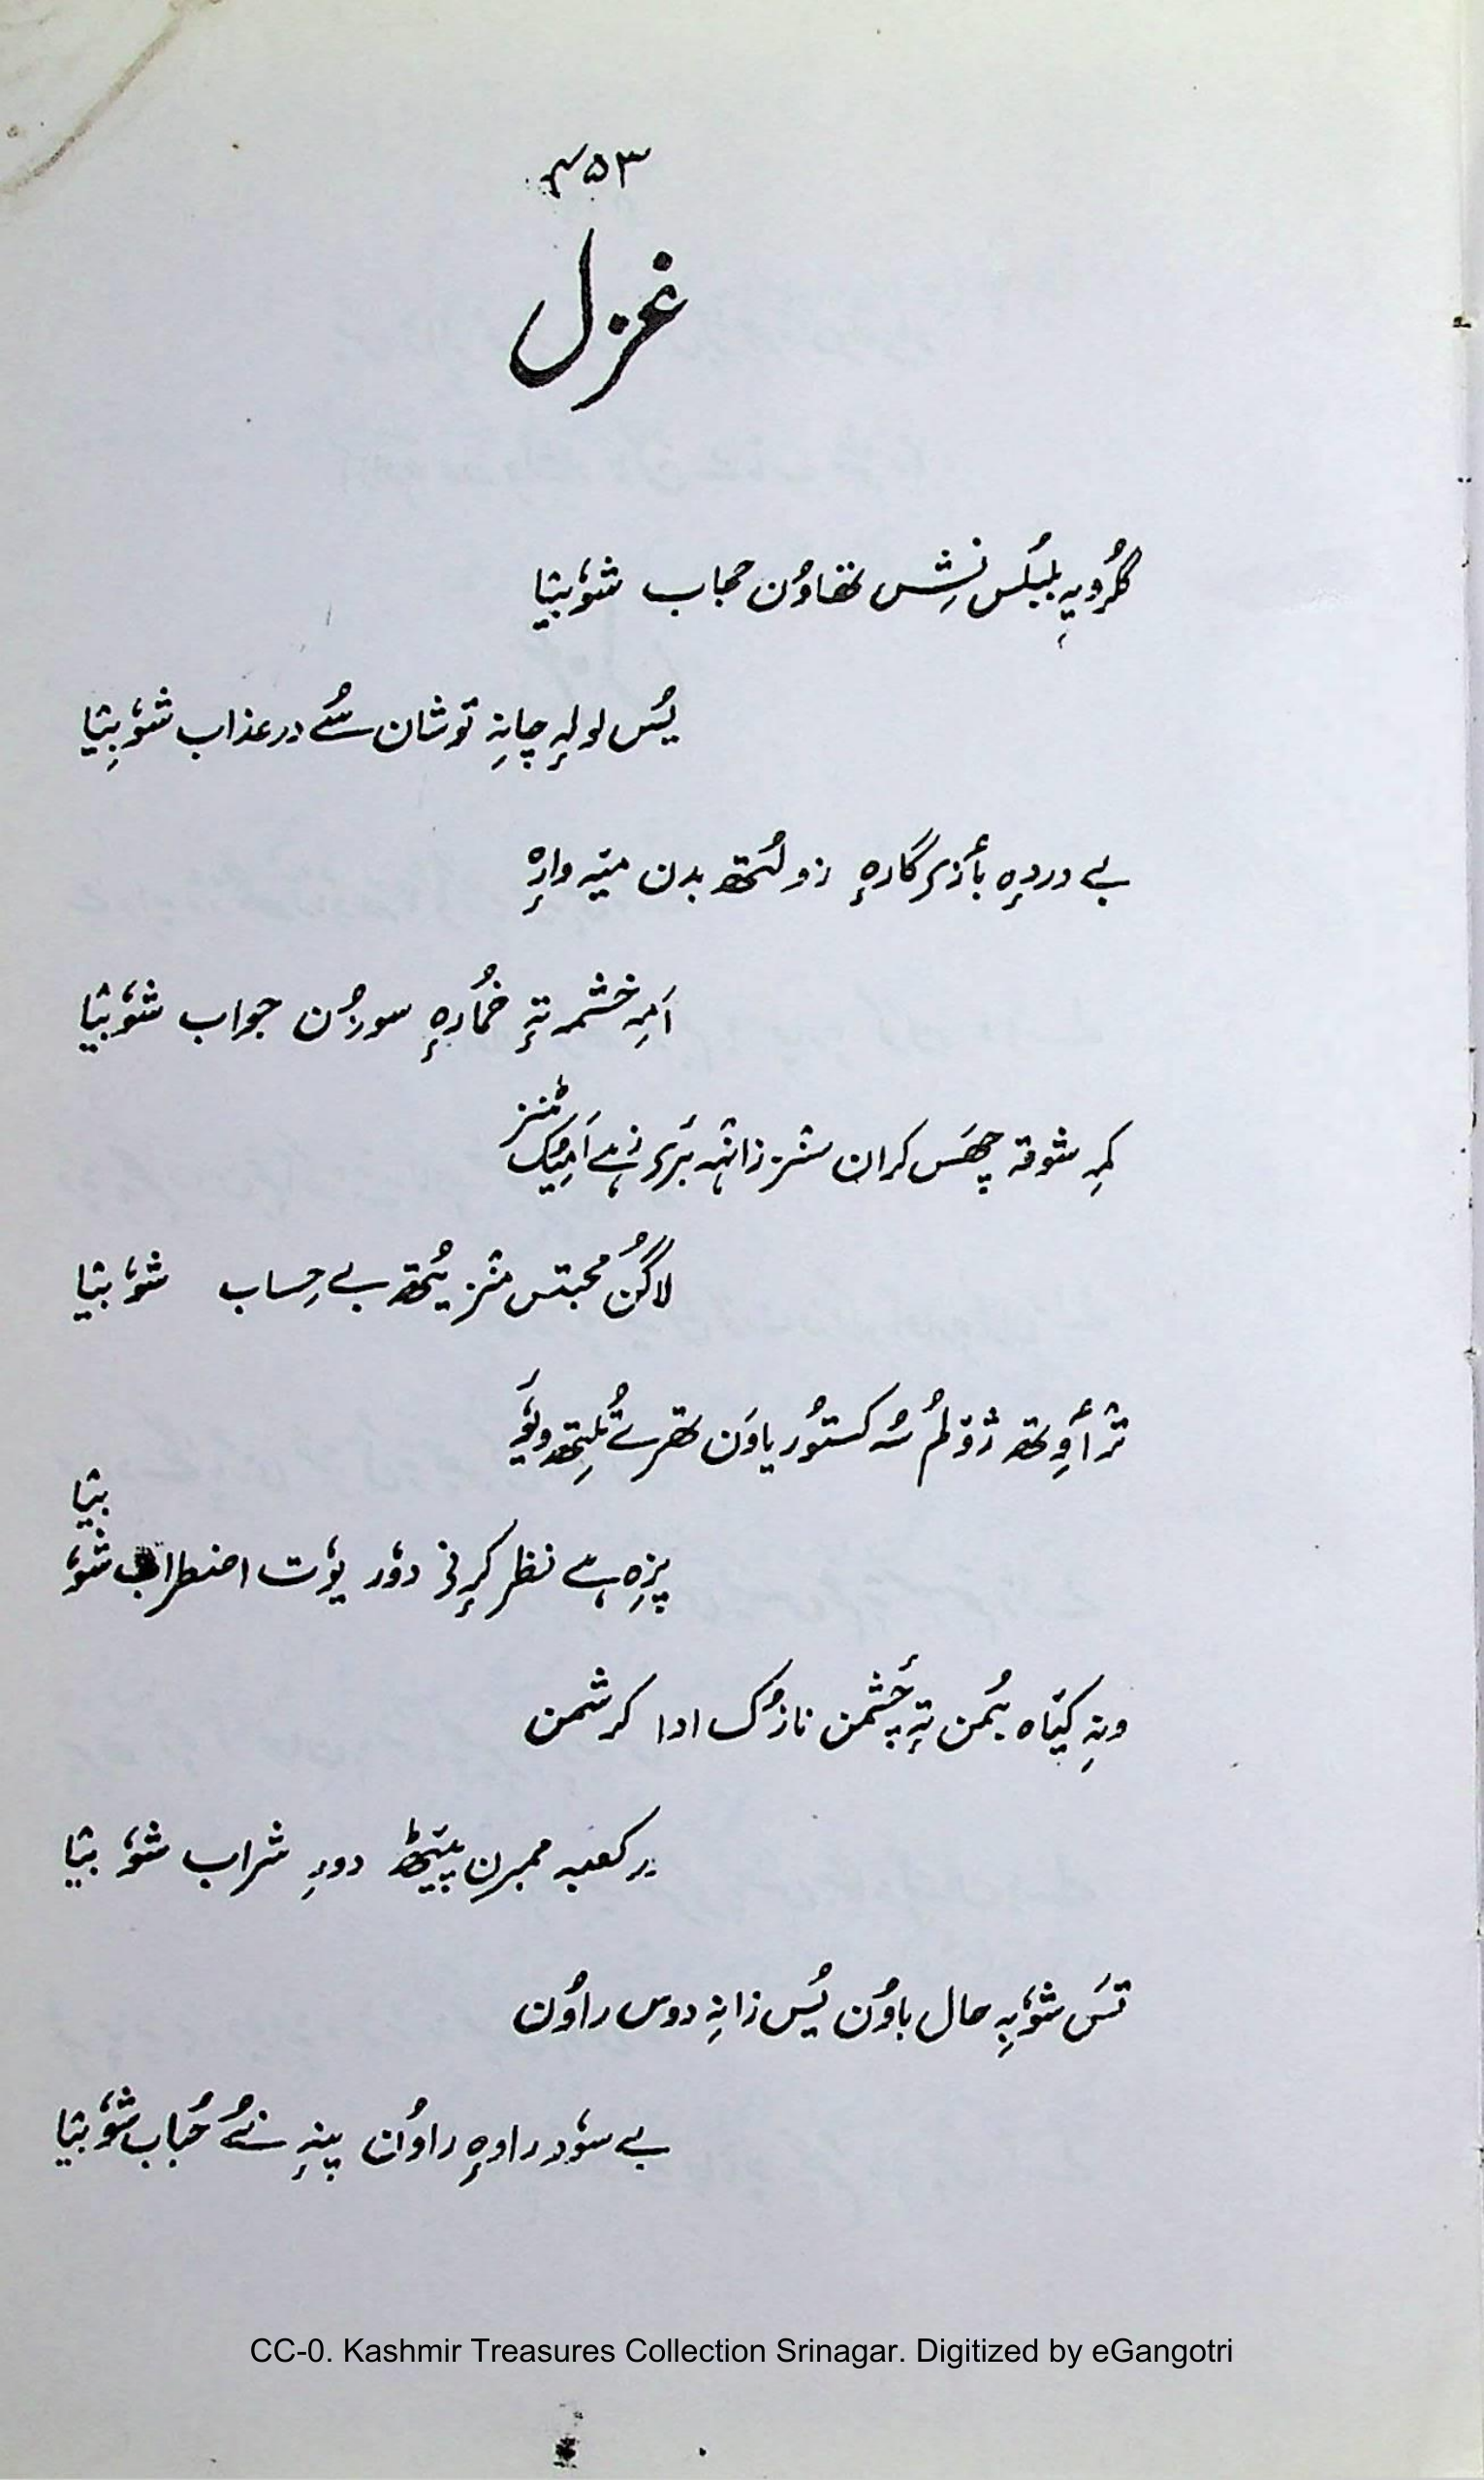 ۴۵۳
غزل
گلرُویہِ بلبُلس نِشِس تھاوُن حجاب شوٗبیٚا
یُس لولہٕ چانہِ توشان سُے در عذاب شوٗبِیٚا
بے دردہٕ بأزی گارہٕ زو لُتھ بدن میٚہ وارٕہ
اَمہِ خشمہ تہٕ خمُارہٕ سورُن جواب شوٗبیٚا
کمہِ شوقہ چھَس کران منٛز زانٛہہ بَری زہے اَمیُٛک منٛز
لاگُن محبتس منٛز یُتھ بے حِساب شوٗبیٚا
ترٛأوِتھ ژوٚلُم سُہ کستوٗر یاوَن تھرے تُلِتھ
پزِہ ہے نظر کرٕنی دوٗر یوٗت اضطراب شوٗبیٚا
ونہٕ کیٚاہ بُمن تہٕ چٔشمن نازُک ادا کرشمن
در کعبہ ممبرن پیٚٹھ دورِ شراب شوٗبیٚا
تَس شوٗبہِ حال باوُن یُس زانہِ دوس راوُن
بے سوٗد راوہٕ راوُن پنہٕ نُے حُباب شوٗبیٚا
CC-0. Kashmir Treasures Collection Srinagar. Digitized by eGangotri